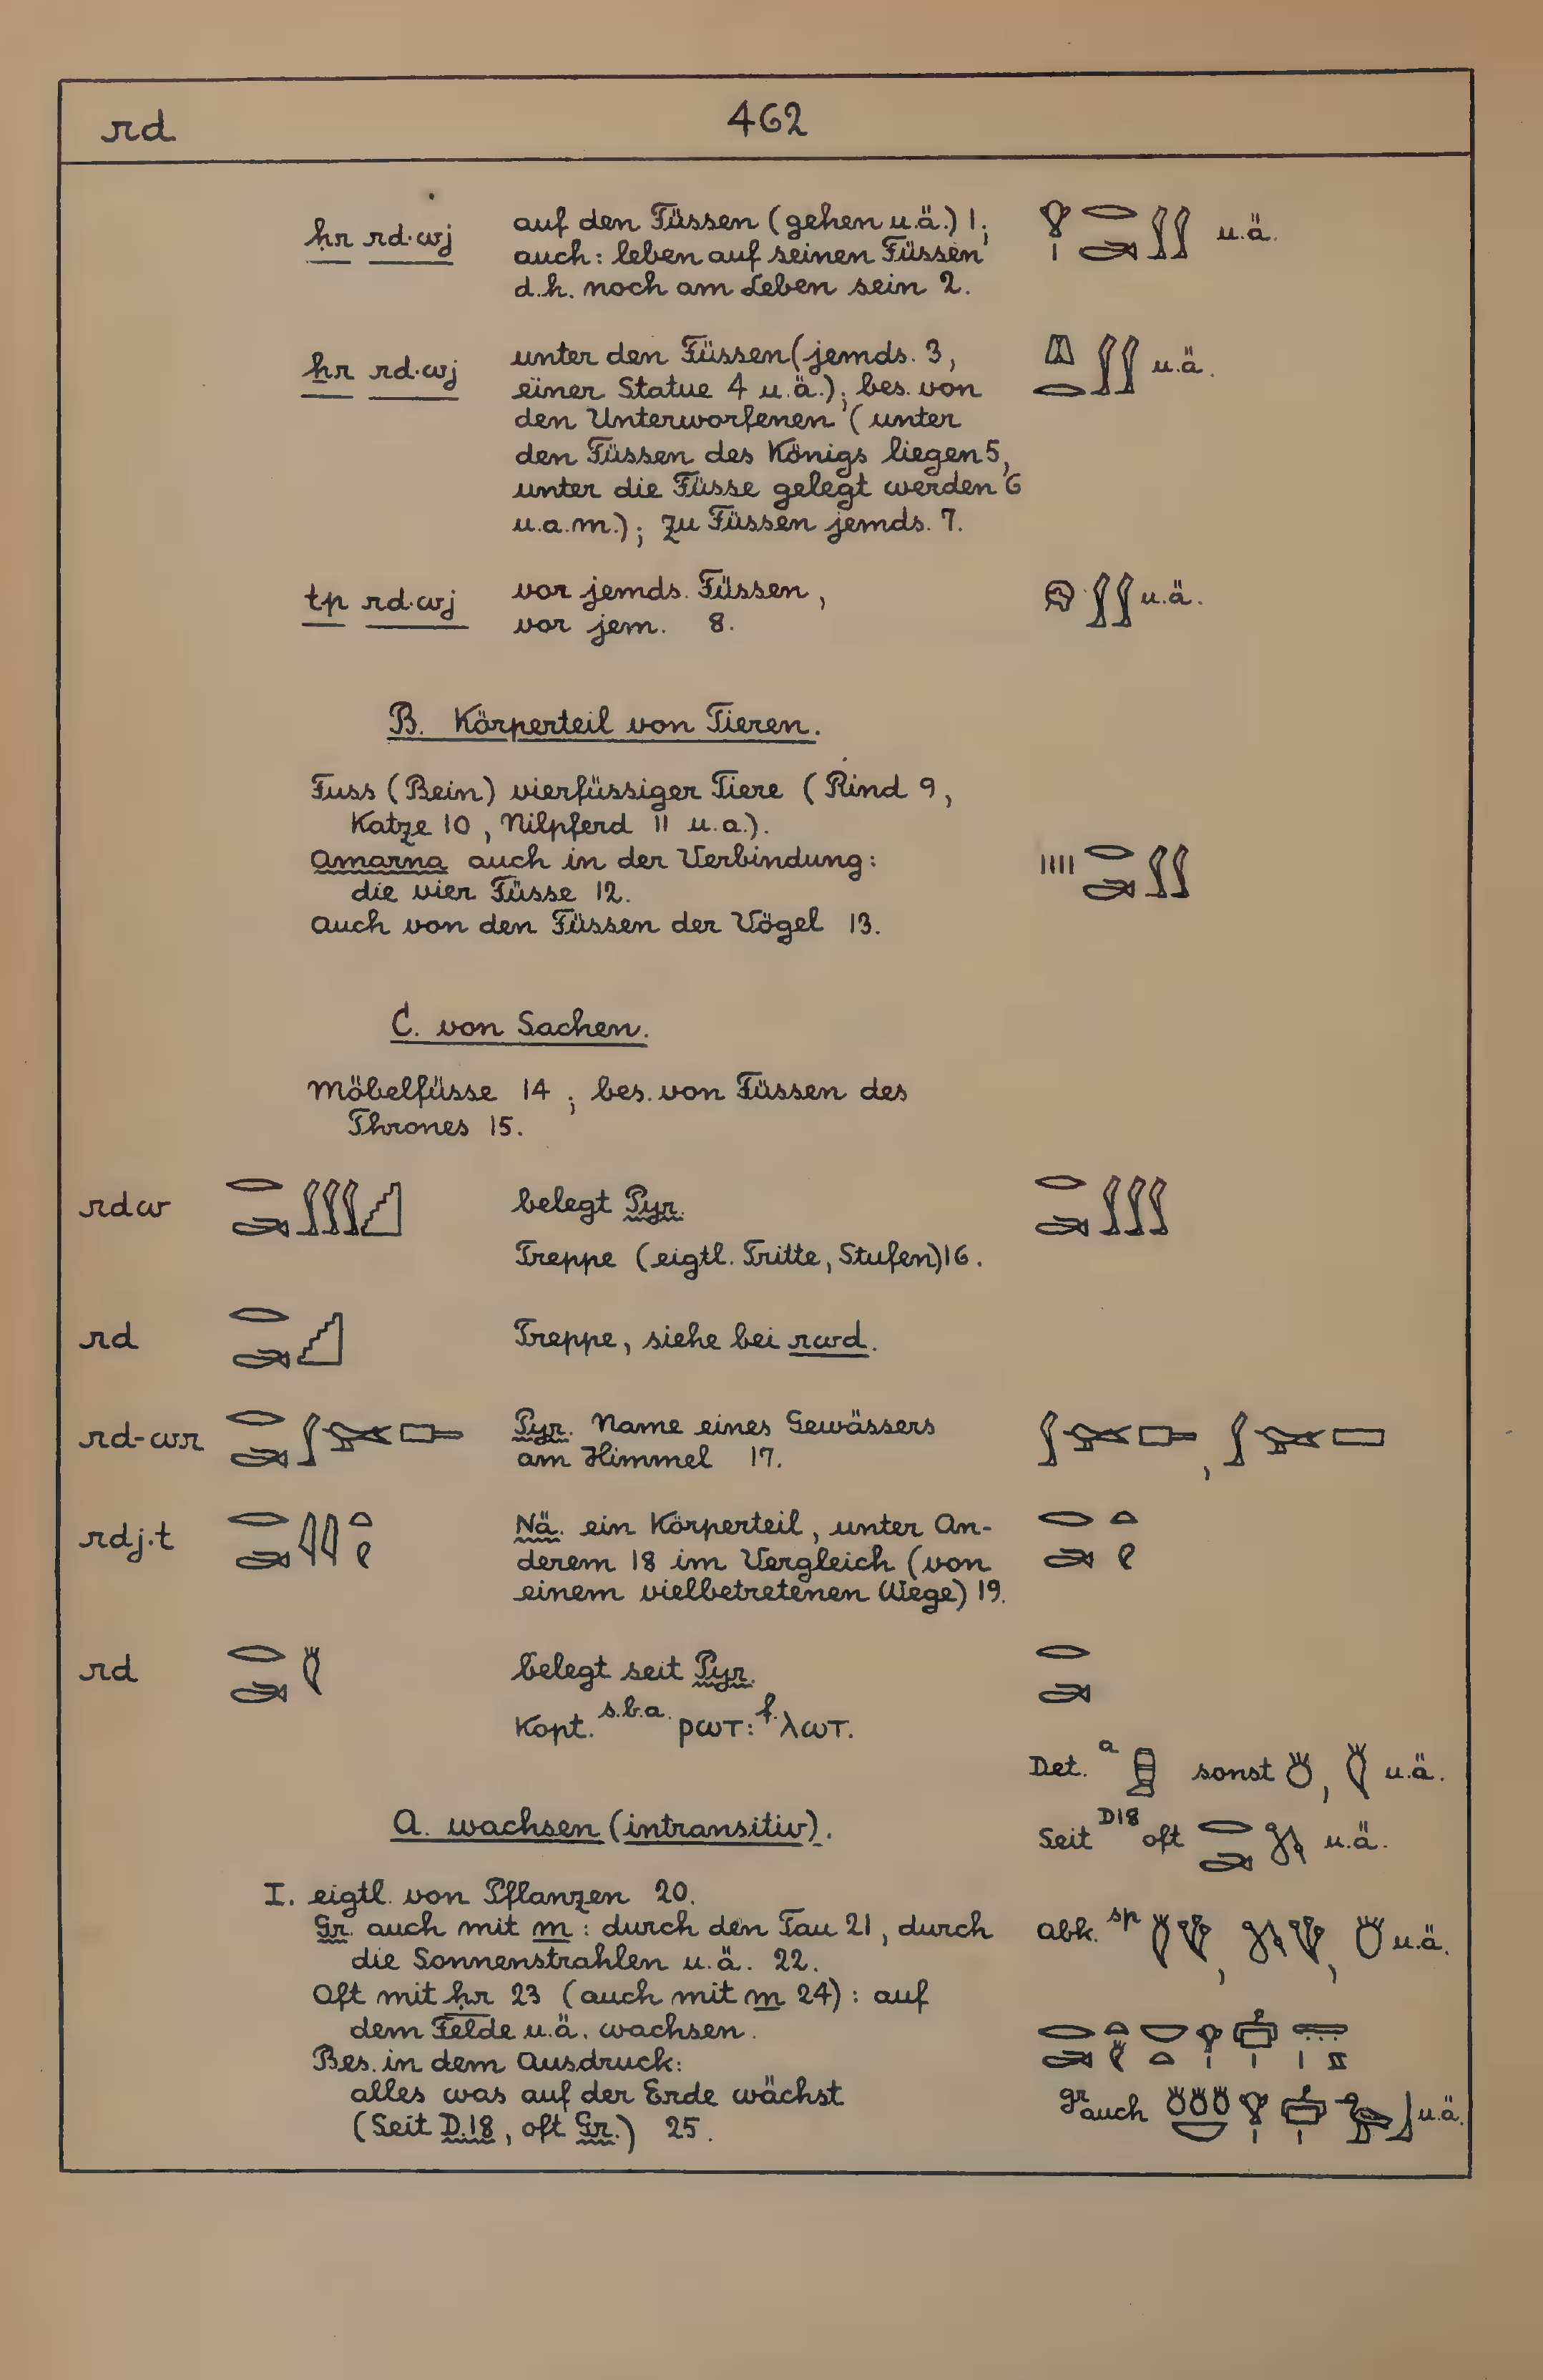 rd 462
ḥr rd·wj auf den Füssen (gehen u.ä.) 1; u.ä.
auch: leben auf seinen Füssen
d.h. noch am Leben sein 2.
ẖr rd·wj unter den Füssen (jemds. 3, u.ä.
einer Statue 4 u.ä.); bes. von
den Unterworfenen (unter
den Füssen des Königs liegen 5,
unter die Füsse gelegt werden 6
u.a.m.); zu Füssen jemds. 7.
tp rd·wj vor jemds. Füssen, u.ä.
vor jem. 8.
B. Körperteil von Tieren.
Fuss (Bein) vierfüssiger Tiere (Rind 9,
Katze 10, Nilpferd 11 u.a.).
Amarna auch in der Verbindung:
die vier Füsse 12.
Auch von den Füssen der Vögel 13.
C. von Sachen.
Möbelfüsse 14; bes. von Füssen des
Thrones 15.
rdw belegt Pyr.
Treppe (eigtl. Tritte, Stufen) 16.
rd Treppe, siehe bei rwd.
rd-wr Pyr. Name eines Gewässers
am Himmel 17.
rdj.t Nä. ein Körperteil, unter An-
derem 18 im Vergleich (von
einem vielbetretenen Wege) 19.
rd belegt seit Pyr.
Kopt. s.b.a. ⲣⲱⲧ: f. ⲗⲱⲧ.
Det. a sonst , u.ä.
A. wachsen (intransitiv).
Seit D18 oft u.ä.
I. eigtl. von Pflanzen 20.
Gr. auch mit m: durch den Tau 21, durch
die Sonnenstrahlen u.ä. 22.
Abk. sp , , u.ä.
Oft mit ḥr 23 (auch mit m 24): auf
dem Felde u.ä. wachsen.
Bes. in dem Ausdruck:
alles was auf der Erde wächst
(Seit D.18, oft Gr.) 25.
gr auch u.ä.